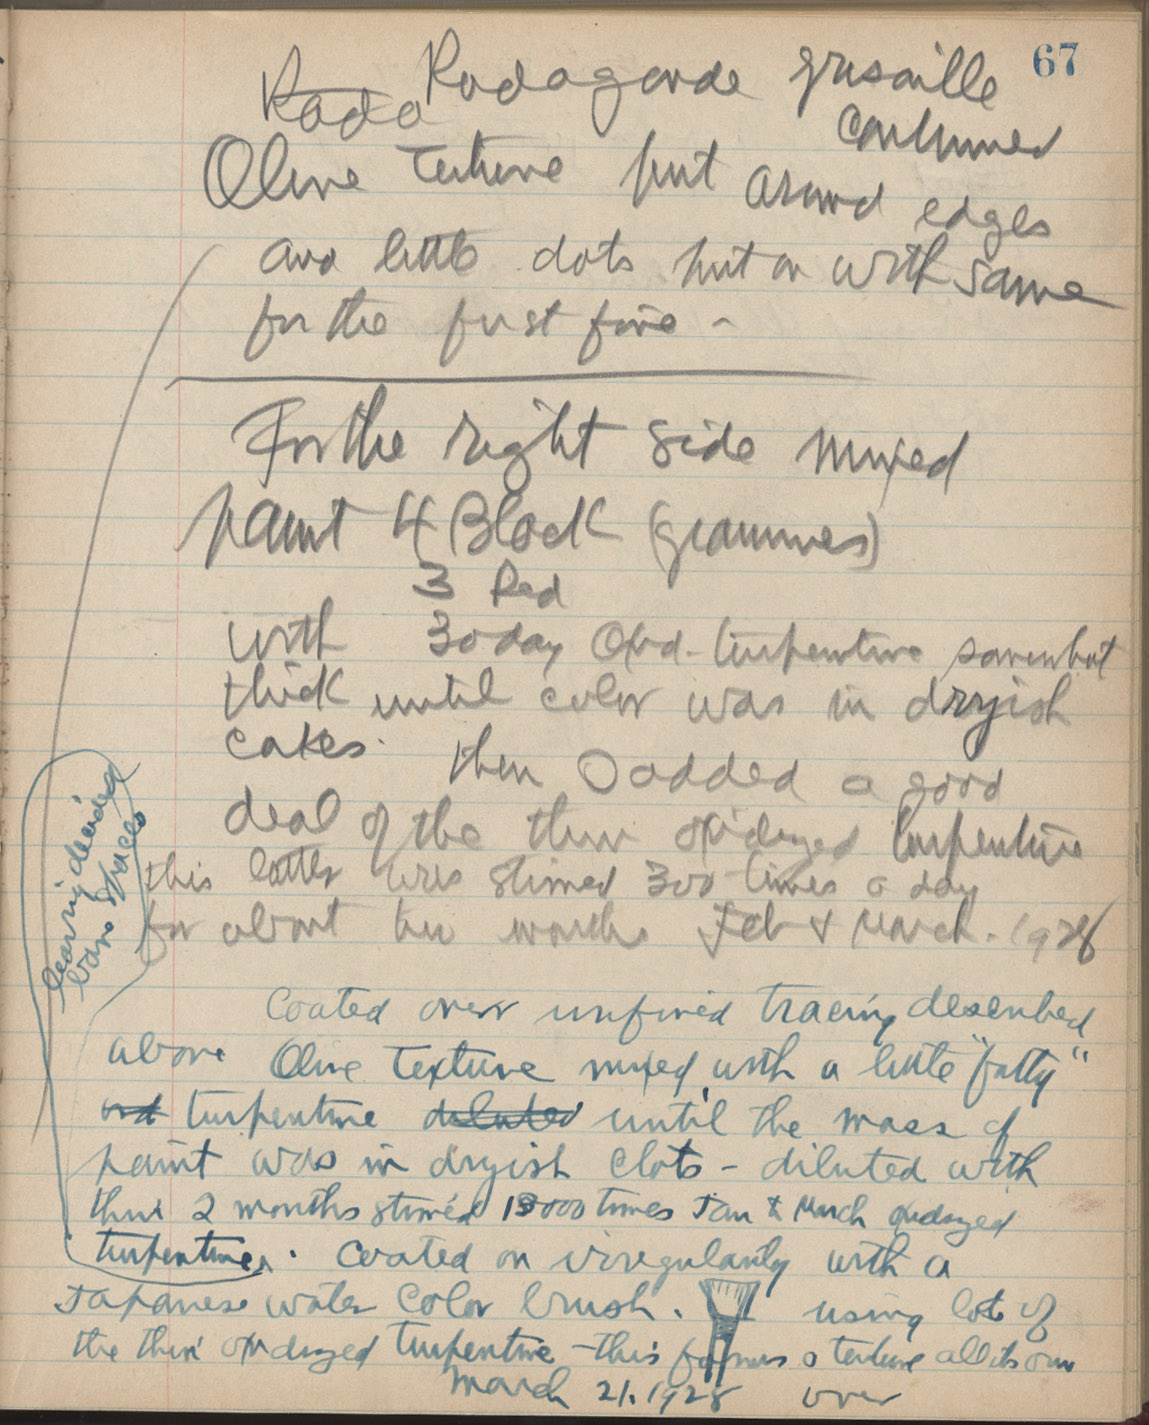 67
Rada Radagonde grisaille
continued
Olive texture put around edges
and little dots put on with same
for the first fire -
For the right side mixed
paint 4 Black (grammes)
3 Red
with 30 day Oxd. turpentine somewhat
thick until color was in dryish
cakes. then I added a good
deal of the thin oxidized turpentine
this latter was stirred 300 times a day
for about two months Feb & March. 1928
leaving decided
bare spaces
Coated over unfired tracing described
above Olive texture mixed with a little "fatty"
and turpentine diluted until the mass of
paint was in dryish clots - diluted with
thin 2 months stirred 18000 times Jan & March oxidized
turpentine. Coated on irregularly with a
Japanese water color brush. using lots of
the thin oxidized turpentine - this forms a texture all its own
March 21. 1928 over